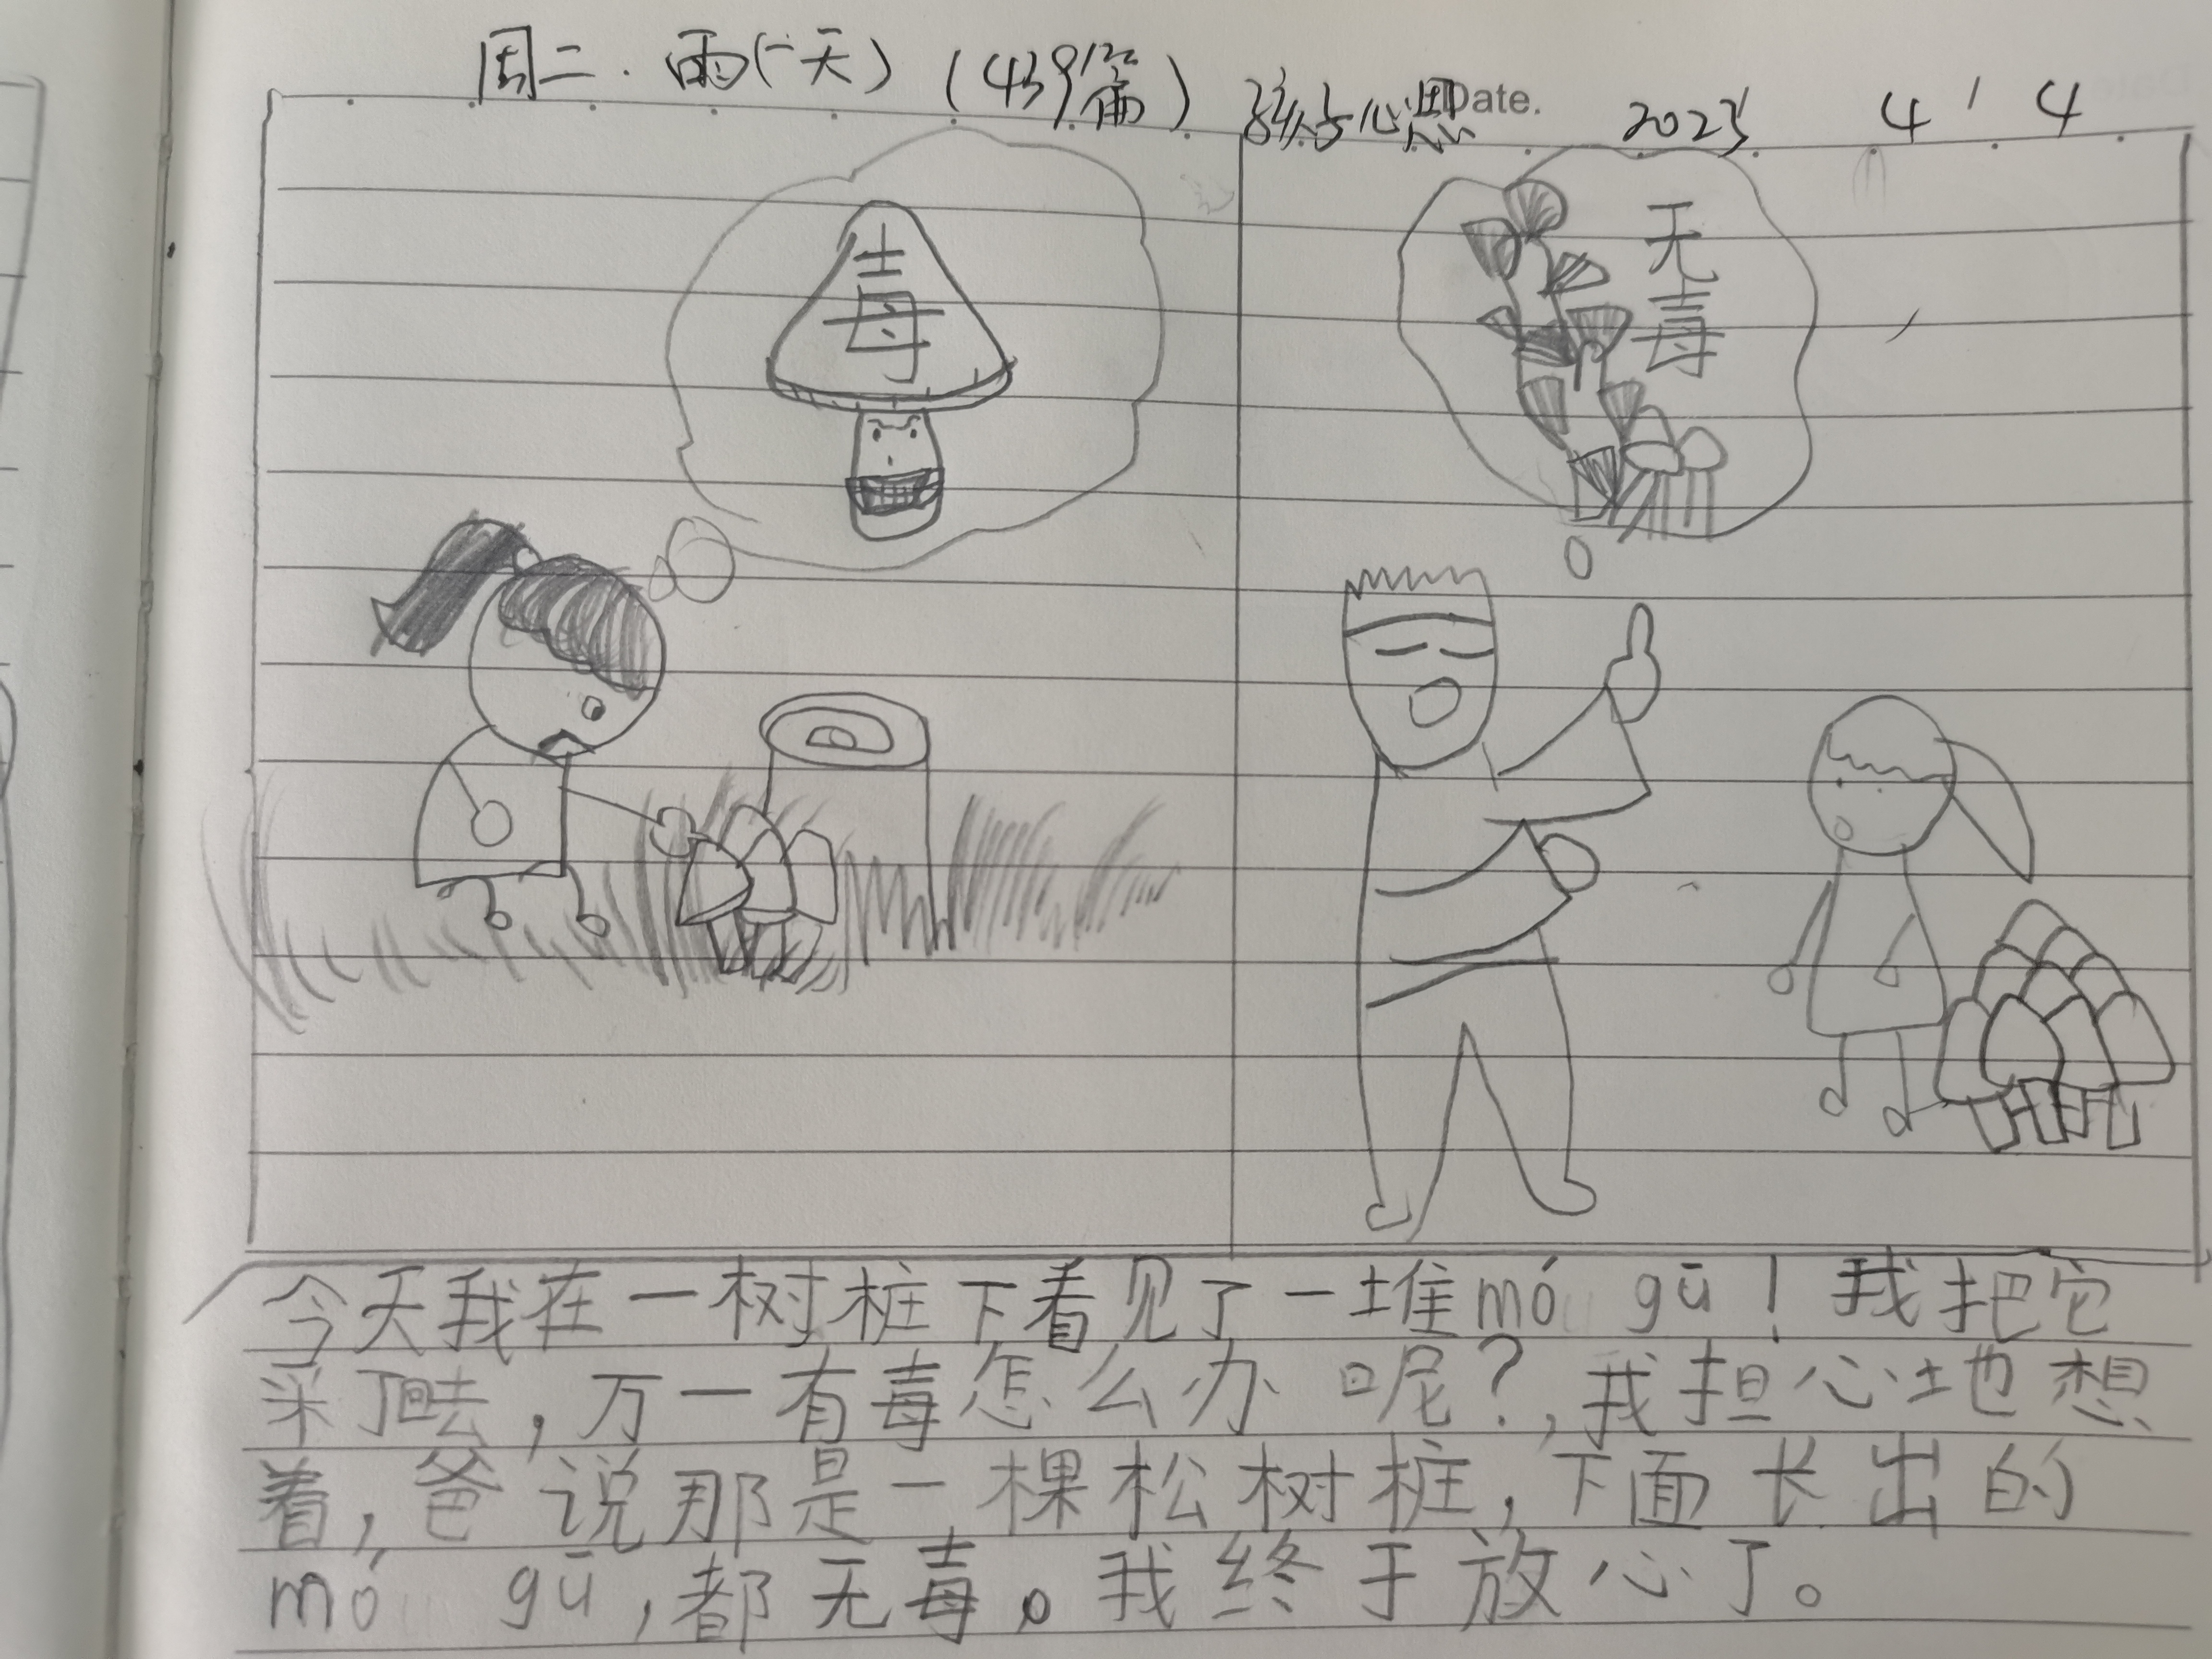 周二. 雨(一天) (439篇) 孩子心思 Date. 2023 4 ' 4
毒
无毒
今天我在一树桩下看见了一堆mó gū！我把它
采了回去，万一有毒怎么办呢？，我担心地想
着，爸说那是一棵松树桩，下面长出的
mó gū，都无毒。我终于放心了。